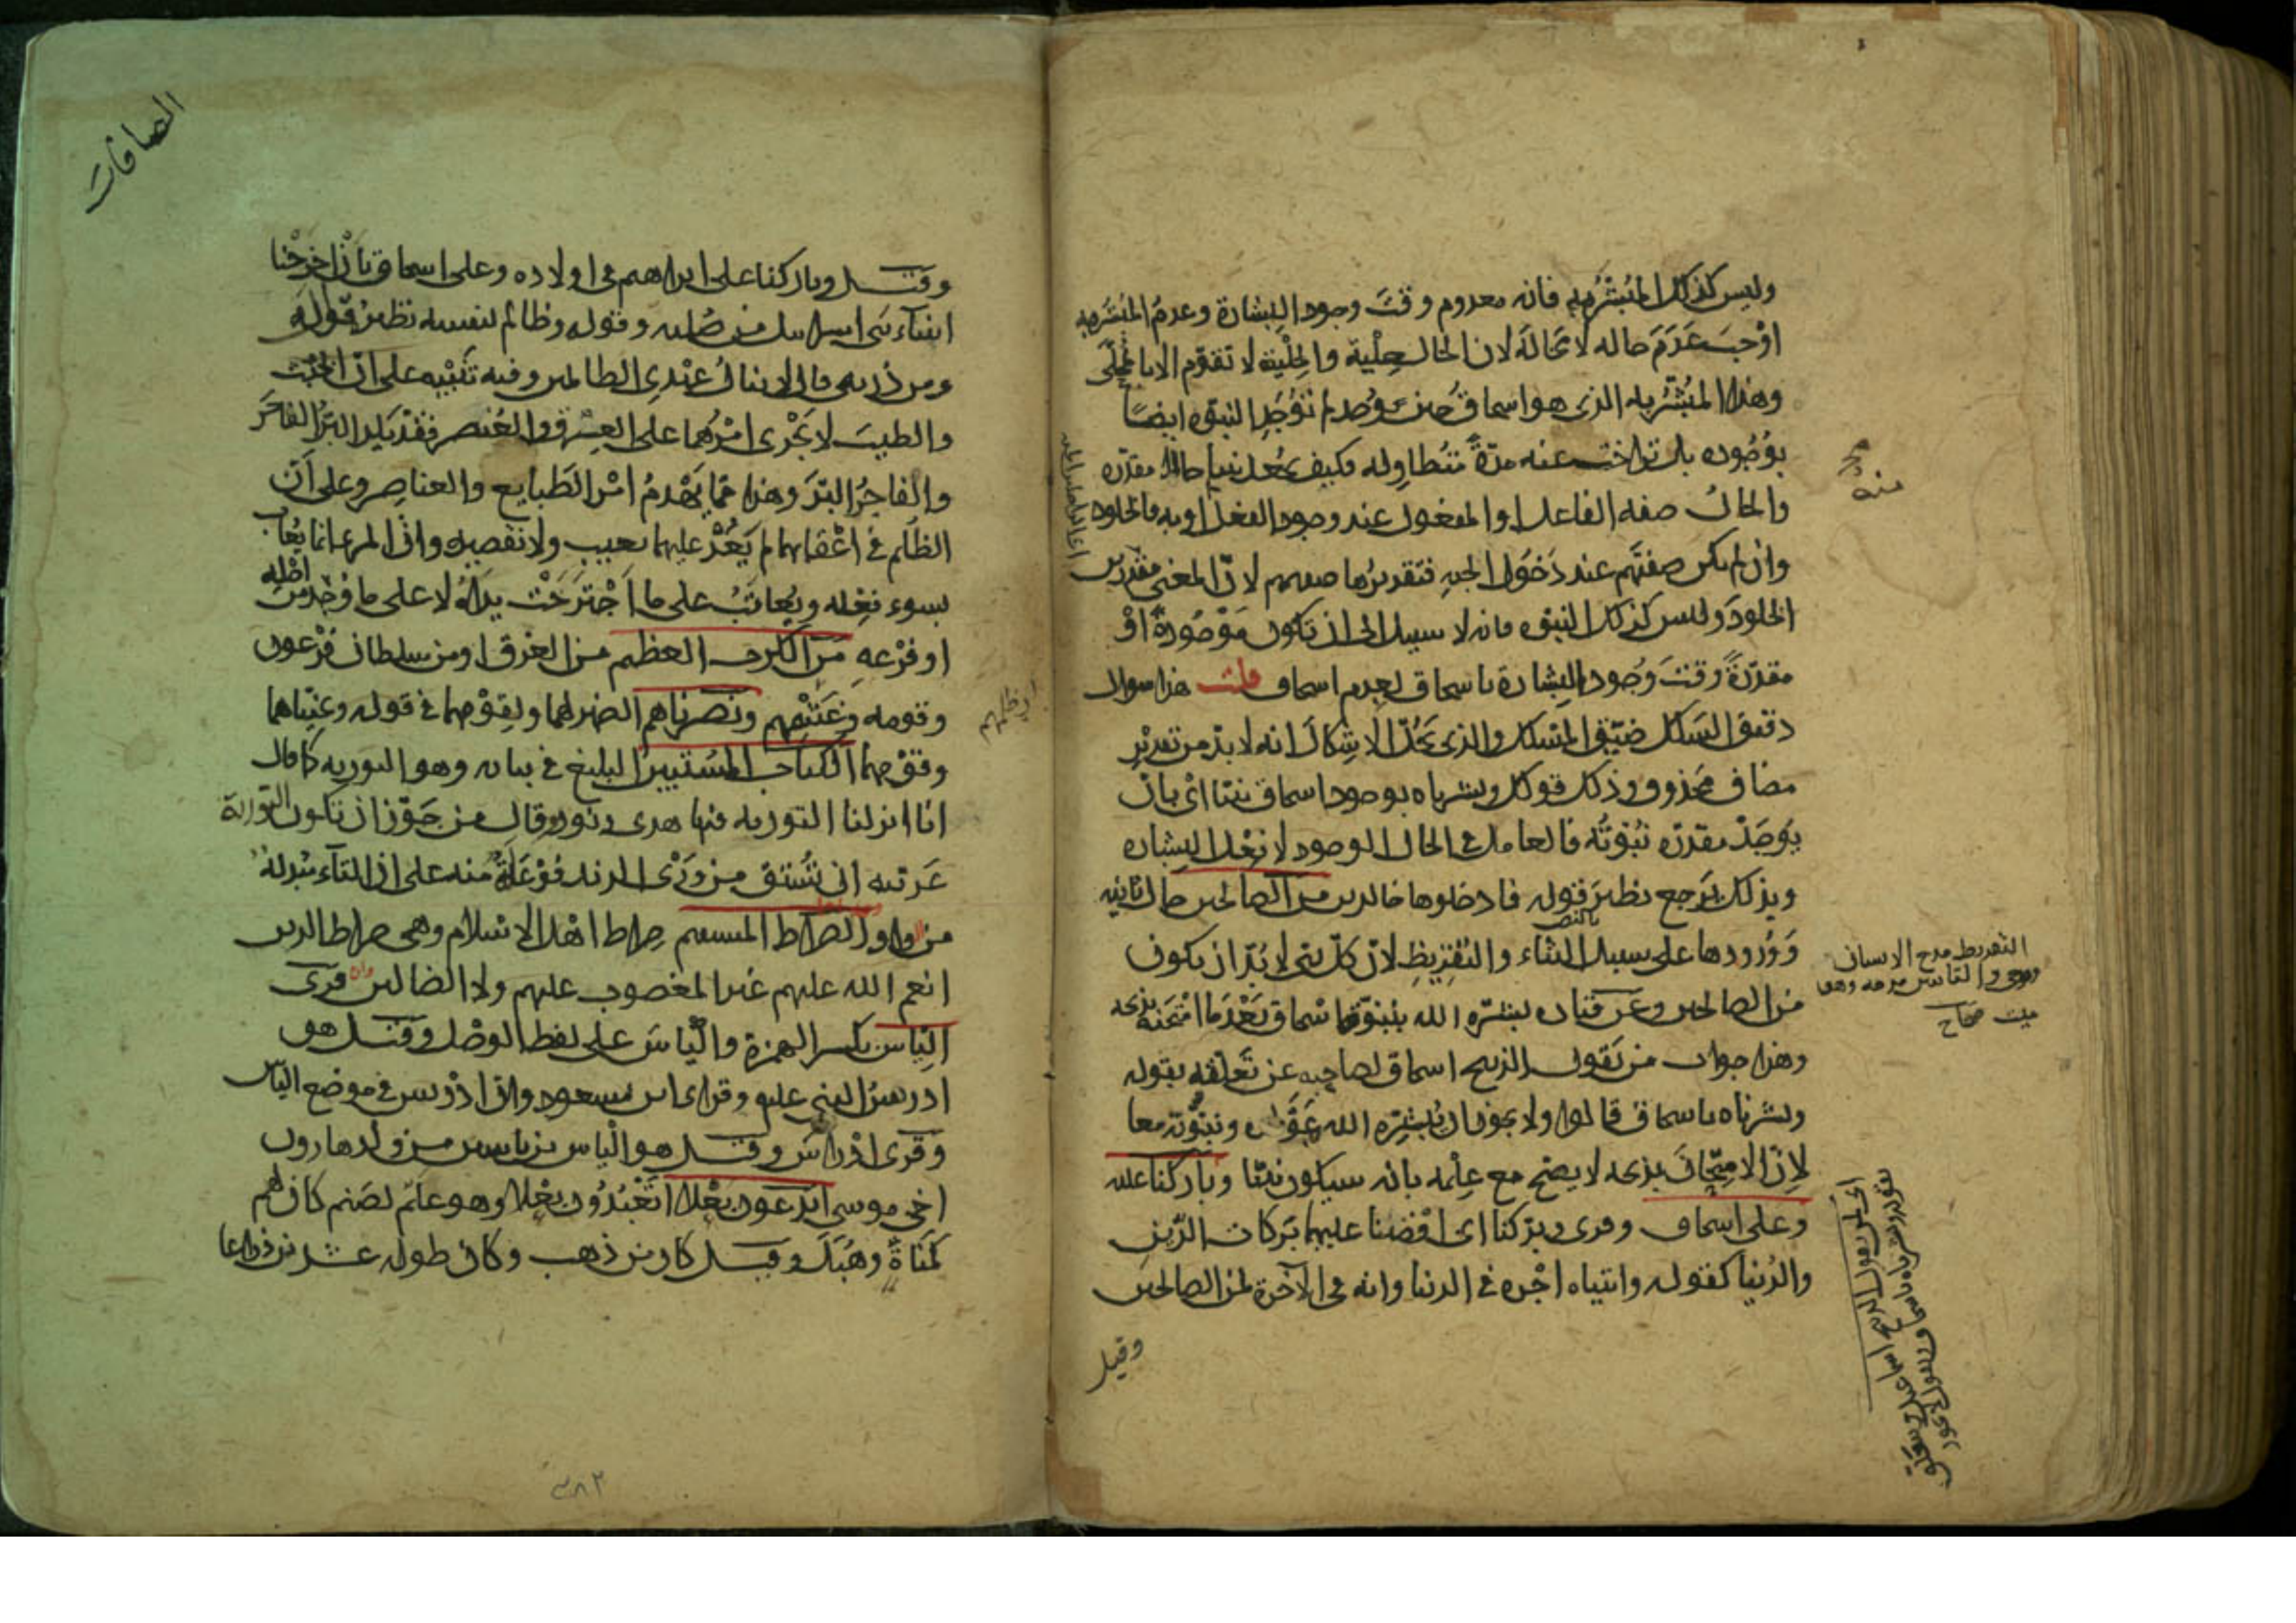 وليس كذلك المبشر به فانه معدوم وقت وجود البشارة وعدم المبشر به
اوجب عدم حاله لا محالة لان الحال حلية والحلية لا تقوم الا بالمحلى
وهذا المبشر به الذى هو اسحاق حين وجد لم توجد النبوة ايضا
بوجوده بل تراخت عنه مدة متطاولة فكيف يجعل نبيا حالا مقدرة
والحال صفة الفاعل او المفعول عند وجود الفعل او به فالخلود
وان لم يكن صفتهم عند دخول الجنة فتقديرها صفتهم لان المعنى مقدرين
الخلود وليس كذلك النبوة فانه لا سبيل الى ان تكون موجودة او
مقدرة وقت وجود البشارة باسحاق لعدم اسحاق قلت هذا سوال
دقيق السلك ضيق المسلك والذى يحل الاشكال انه لا بد من تقدير
مضاف محذوف وذلك قولك وبشرناه بوجود اسحاق نبيا اى بان
يوجد مقدرة نبوته فالعامل فى الحال الوجود لا فعل البشارة
وبذلك يرجع نظير قوله فادخلوها خالدين من الصالحين حال ثانية
وورودها على سبيل الثناء والتقريظ لان كل نبى لا بد ان يكون
من الصالحين وعن قتادة بشره الله بنبوة اسحاق بعد ما امتحنه بذبحه
وهذا جواب من يقول الذبيح اسحاق لصاحبه عن تعلقه بقوله
وبشرناه باسحاق قالوا ولا يجوز ان يبشره الله بمولده ونبوته معا
لان الامتحان بذبحه لا يصح مع علمه بانه سيكون نبيا وباركنا عليه
وعلى اسحاق وقرى وبركنا اى افضنا عليهما بركات الدين
والدنيا كقوله وآتيناه اجره فى الدنيا وانه فى الآخرة لمن الصالحين
وقيل
منه
التقريظ مدح الانسان
وهو حى والتأبين مدحه وهو
ميت صحاح
الصافات
وقيل وباركنا على ابراهيم فى اولاده وعلى اسحاق بان اخرجنا
انبياء بنى اسرائيل من صلبه وقوله وظالم لنفسه نظيره قوله
ومن ذريتى قال لا ينال عهدى الظالمين وفيه تنبيه على ان الخبث
والطيب لا يجرى امرهما على العرق والعنصر فقد يلد البر الفاجر
والفاجر البر وهذا مما يهدم امر الطبايع والعناصر وعلى ان
الظلم فى اعقابهما لم يعد عليهما بعيب ولا نقيصة وان المرء انما يعاب
بسوء فعله ويعاتب على ما اجترحت يداه لا على ما وجد من اصله
او فرعه من الكرب العظيم من الغرق او من سلطان فرعون
وقومه وغشمهم ونصرناهم الضمير لهما ولقومهما فى قوله ونجيناهما
وقومهما الكتاب المستبين البليغ فى بيانه وهو التورية كما قال
انا انزلنا التورية فيها هدى ونور وقال من جوز ان تكون التوراة
عربية ان تشتق من ورى الزند فوعلة منه على ان التاء مبدلة
من واو الصراط المستقيم صراط اهل الاسلام وهى صراط الذين
انعم الله عليهم غير المغضوب عليهم ولا الضالين قرى
الياس بكسر الهمزة والياس على لفظ الوصل وقيل هو
ادريس النبى عليه وقراى ابن مسعود وان ادريس فى موضع الياس
وقرى ادراس وقيل هو الياس بن ياسين من ولد هارون
اخى موسى اتدعون بعلا اتعبدون بعلا وهو علم لصنم كان لهم
كمناة وهبل وقيل كان من ذهب وكان طوله عشرين ذراعا